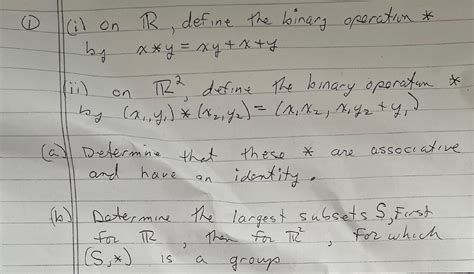 ① (i) on ℝ, define the binary operation *
by x*y = xy+x+y
(ii) on ℝ², define the binary operation *
by (x₁,y₁)*(x₂,y₂) = (x₁x₂, x₁y₂+y₁)
(a) Determine that these * are associative
and have an identity.
(b) Determine the largest subsets S, first
for ℝ, then for ℝ², for which
(S,*) is a group